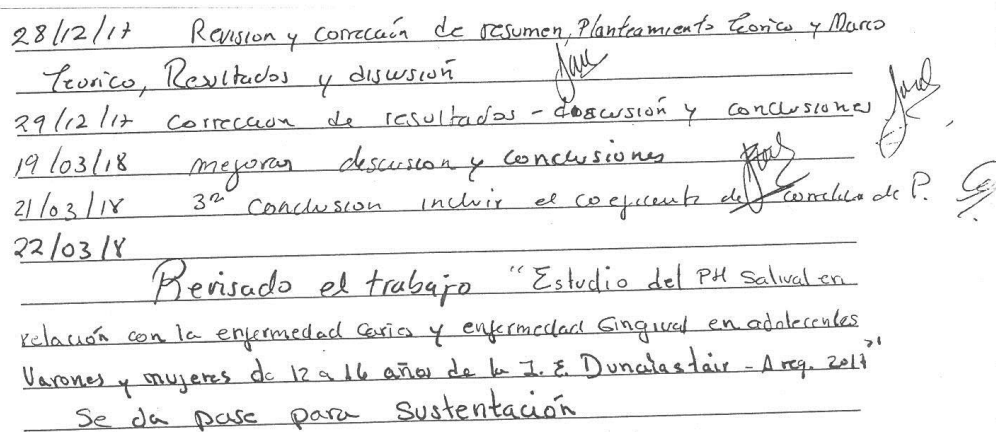 28/12/17 Revision y corrección de resumen, Planteamiento teorico y Marco
Teorico, Resultados y discusión
29/12/17 correccion de resultados - discusión y conclusiones
19/03/18 mejorar descusion y conclusiones
21/03/18 3ra conclusion incluir el coeficente de de P.
22/03/8
Revisado el trabajo "Estudio del PH Salival en
relación con la enfermedad caries y enfermedad Gingival en adolecentes
Varones y mujeres de 12 a 16 años de la I.E. Dunalastair - Areq. 2017"
Se da pase para sustentación